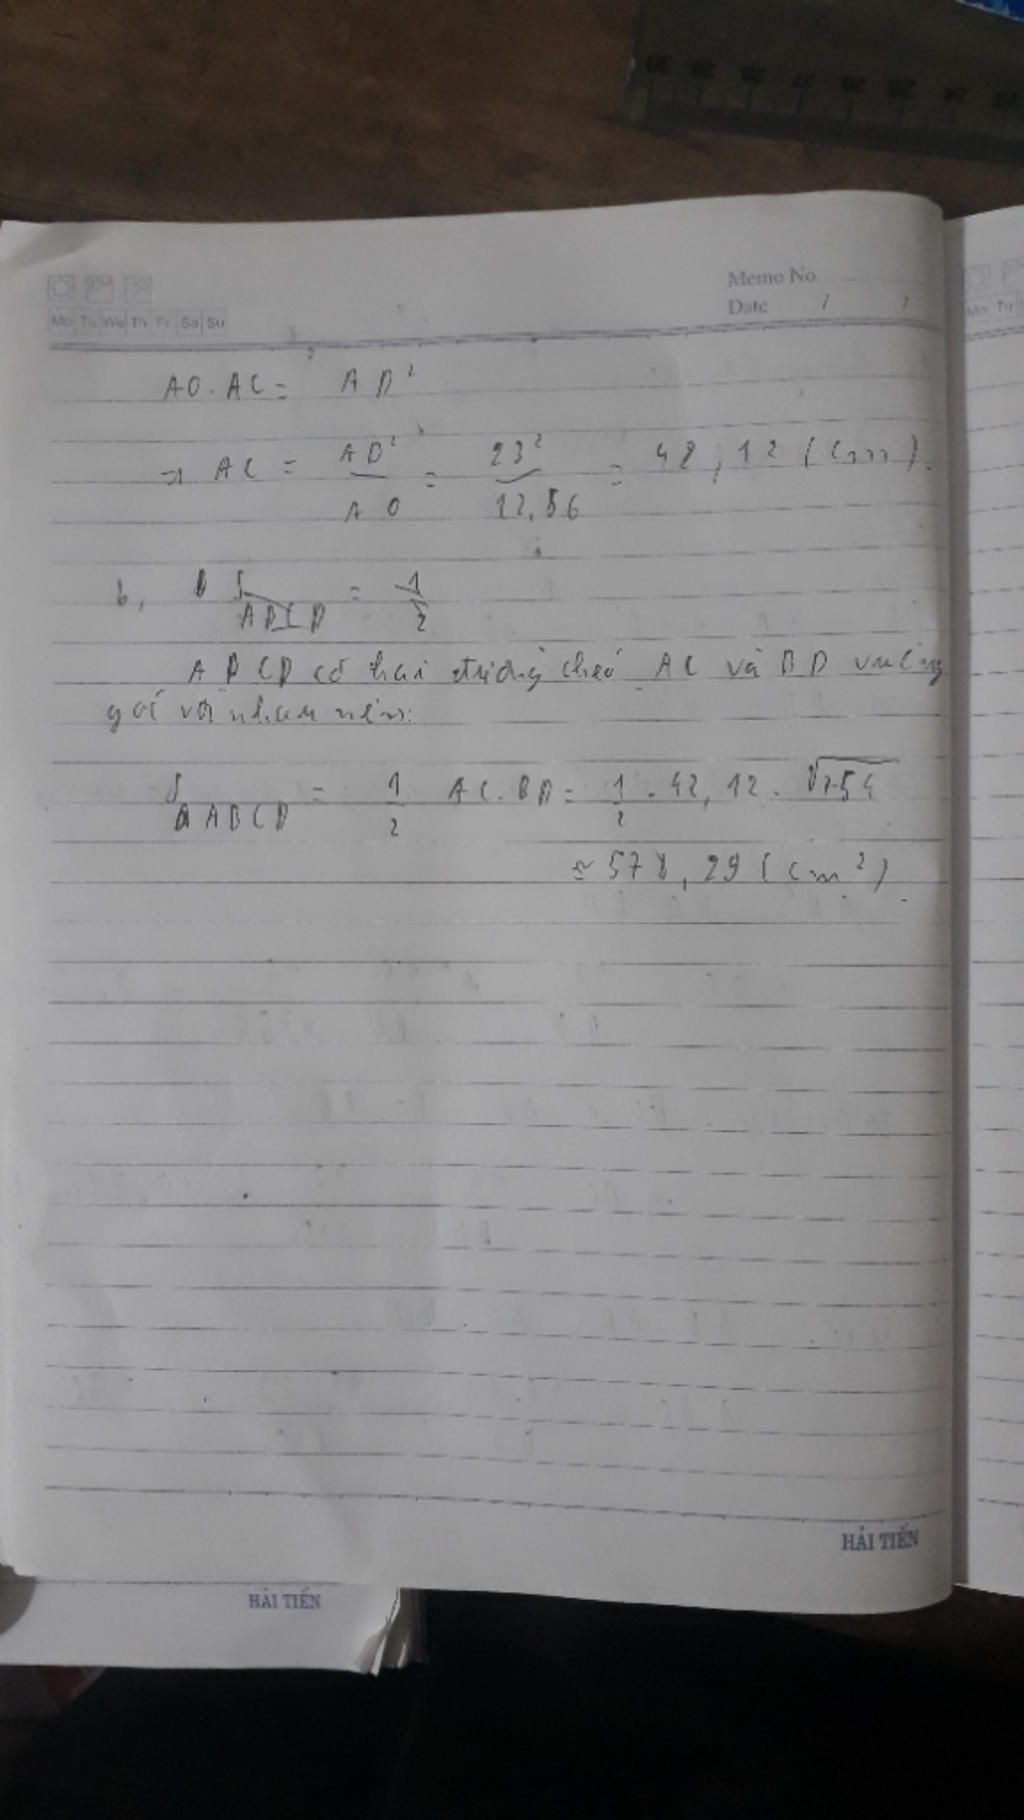 30 29 28 27 26 25 24
Memo No.
Date / /
Mo Tu We Th Fr Sa Su
Mo Tu
AO.AC = AD²
=> AC = AD²/AO = 23²/12,56 = 42,12 (cm).
b, S ABCD = 1/2
ABCD có hai đường chéo AC và BD vuông
góc với nhau nên:
S ABCD = 1/2 AC.BD = 1/2 . 42,12 . √754
≈ 578,29 (cm²)
HẢI TIẾN
HẢI TIẾN